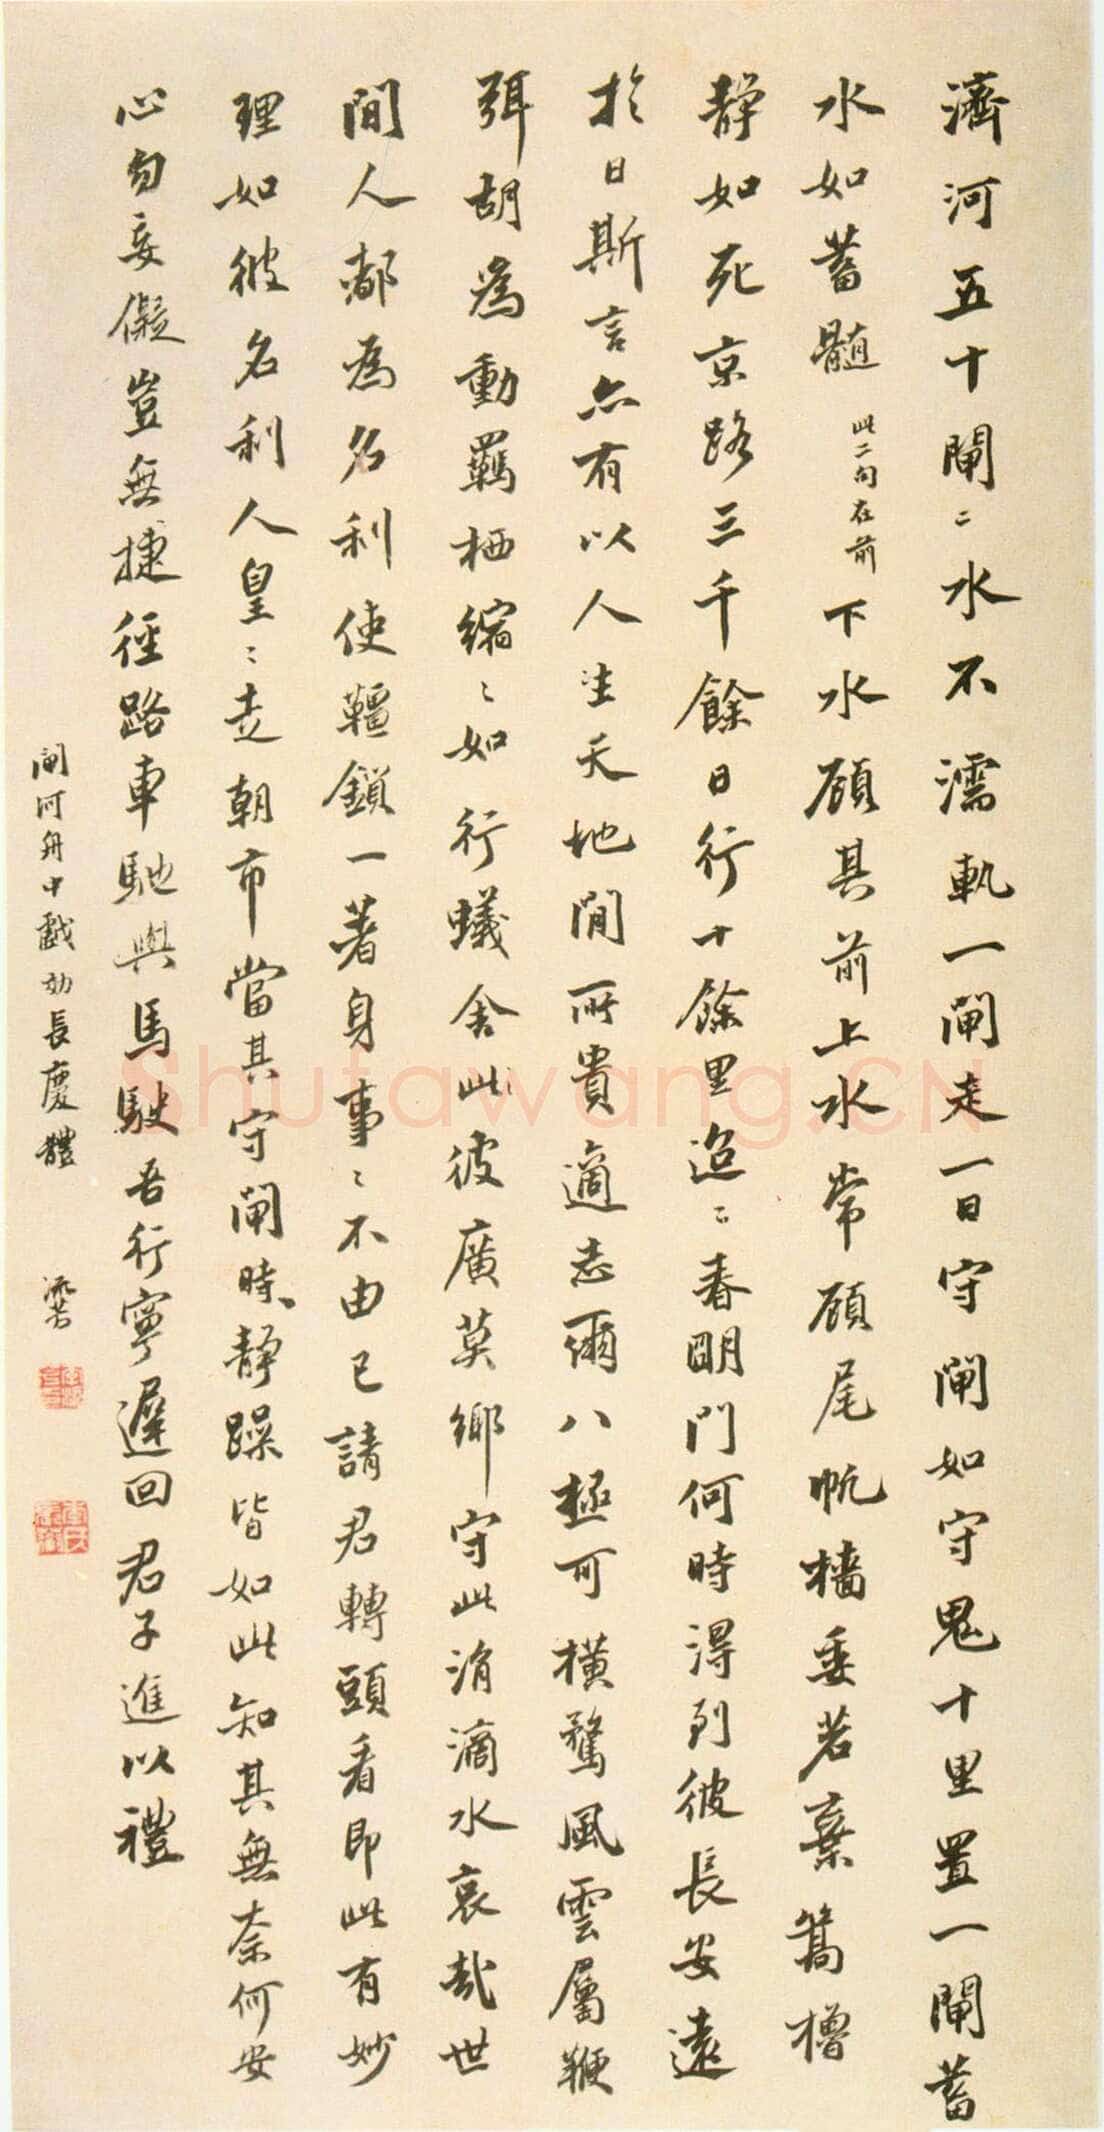 濟河五十閘〻水不濡軌一閘走一日守閘如守鬼十里置一閘蓄
水如蓄髓此二句在前下水顧其前上水常顧尾帆檣委若棄篙櫓
靜如死京路三千餘日行十餘里迢〻春明門何時得到彼長安遠
於日斯言亦有以人生天地間所貴適志爾八極可橫騖風雲屬鞭
弭胡為動羈栖縮〻如行蟻舍此彼廣莫鄉守此涓滴水哀哉世
間人都為名利使韁鎖一著身事〻不由已請君轉頭看即此有妙
理如彼名利人皇〻走朝市當其守閘時靜躁皆如此知其無奈何安
心勿妄儗豈無捷徑路車馳與馬駛吾行寧遲回君子進以禮
閘河舟中戲効長慶體
流芳
Shufawang.CN